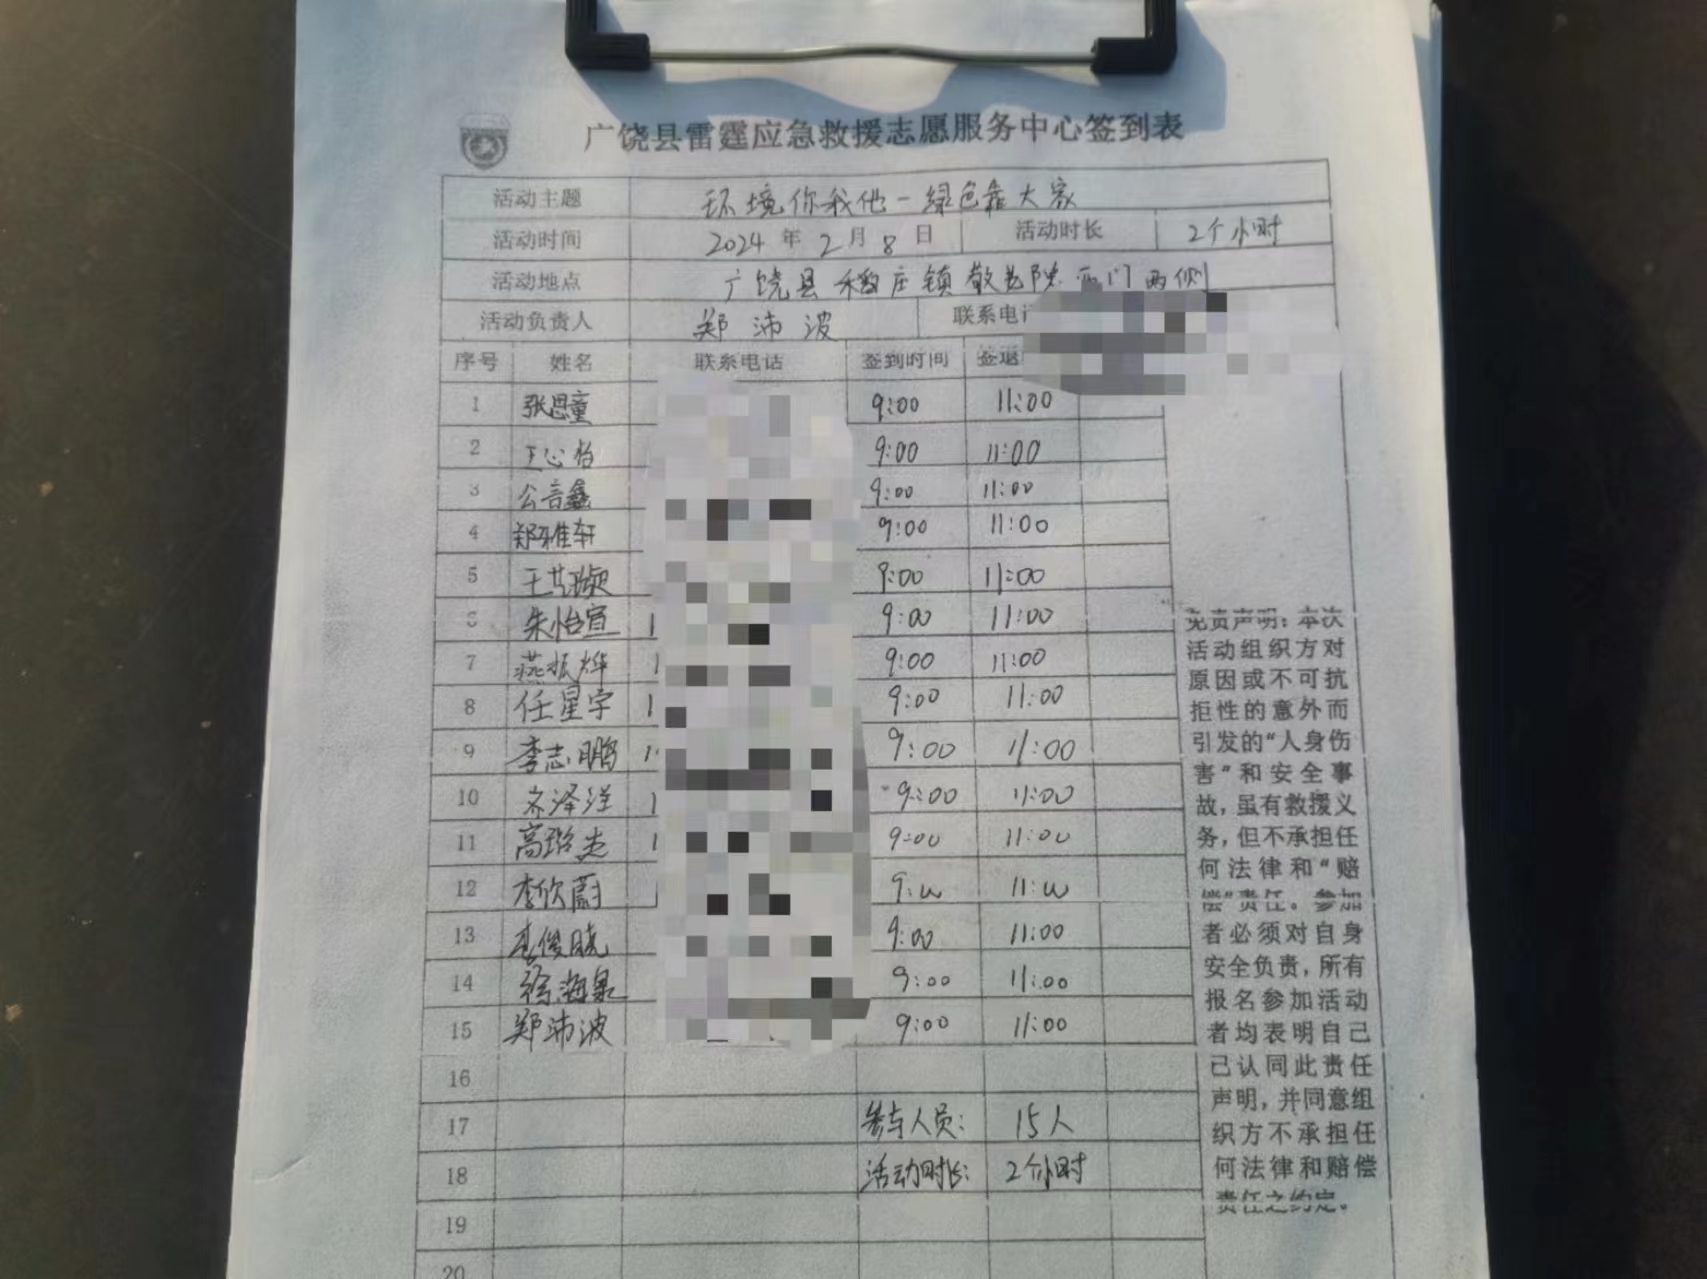 广饶县雷霆应急救援志愿服务中心签到表
活动主题 环境你我他一绿色靠大家
活动时间 2024年2月8日 活动时长 2个小时
活动地点 广饶县稻庄镇敬老院西门两侧
活动负责人 郑沛波 联系电
序号 姓名 联系电话 签到时间 签退
1 张恩童 9:00 11:00
2 王心怡 9:00 11:00
3 公言鑫 9:00 11:00
4 郑雅轩 9:00 11:00
5 王艺璇 9:00 11:00
6 朱怡宣 1 9:00 11:00
7 燕振烨 1 9:00 11:00
8 任星宇 1 9:00 11:00
9 李志鹏 1 9:00 11:00
10 齐泽洋 1 9:00 11:00
11 高璐杰 1 9:00 11:00
12 李欣蔚 9:00 11:00
13 李俊晓 9:00 11:00
14 徐海泉 9:00 11:00
15 郑沛波 9:00 11:00
16
17 参与人员: 15人
18 活动时长: 2个小时
19
20
免责声明：本次
活动组织方对
原因或不可抗
拒性的意外而
引发的“人身伤
害”和安全事
故，虽有救援义
务，但不承担任
何法律和“赔
偿”责任。参加
者必须对自身
安全负责，所有
报名参加活动
者均表明自己
已认同此责任
声明，并同意组
织方不承担任
何法律和赔偿
责任之约定。